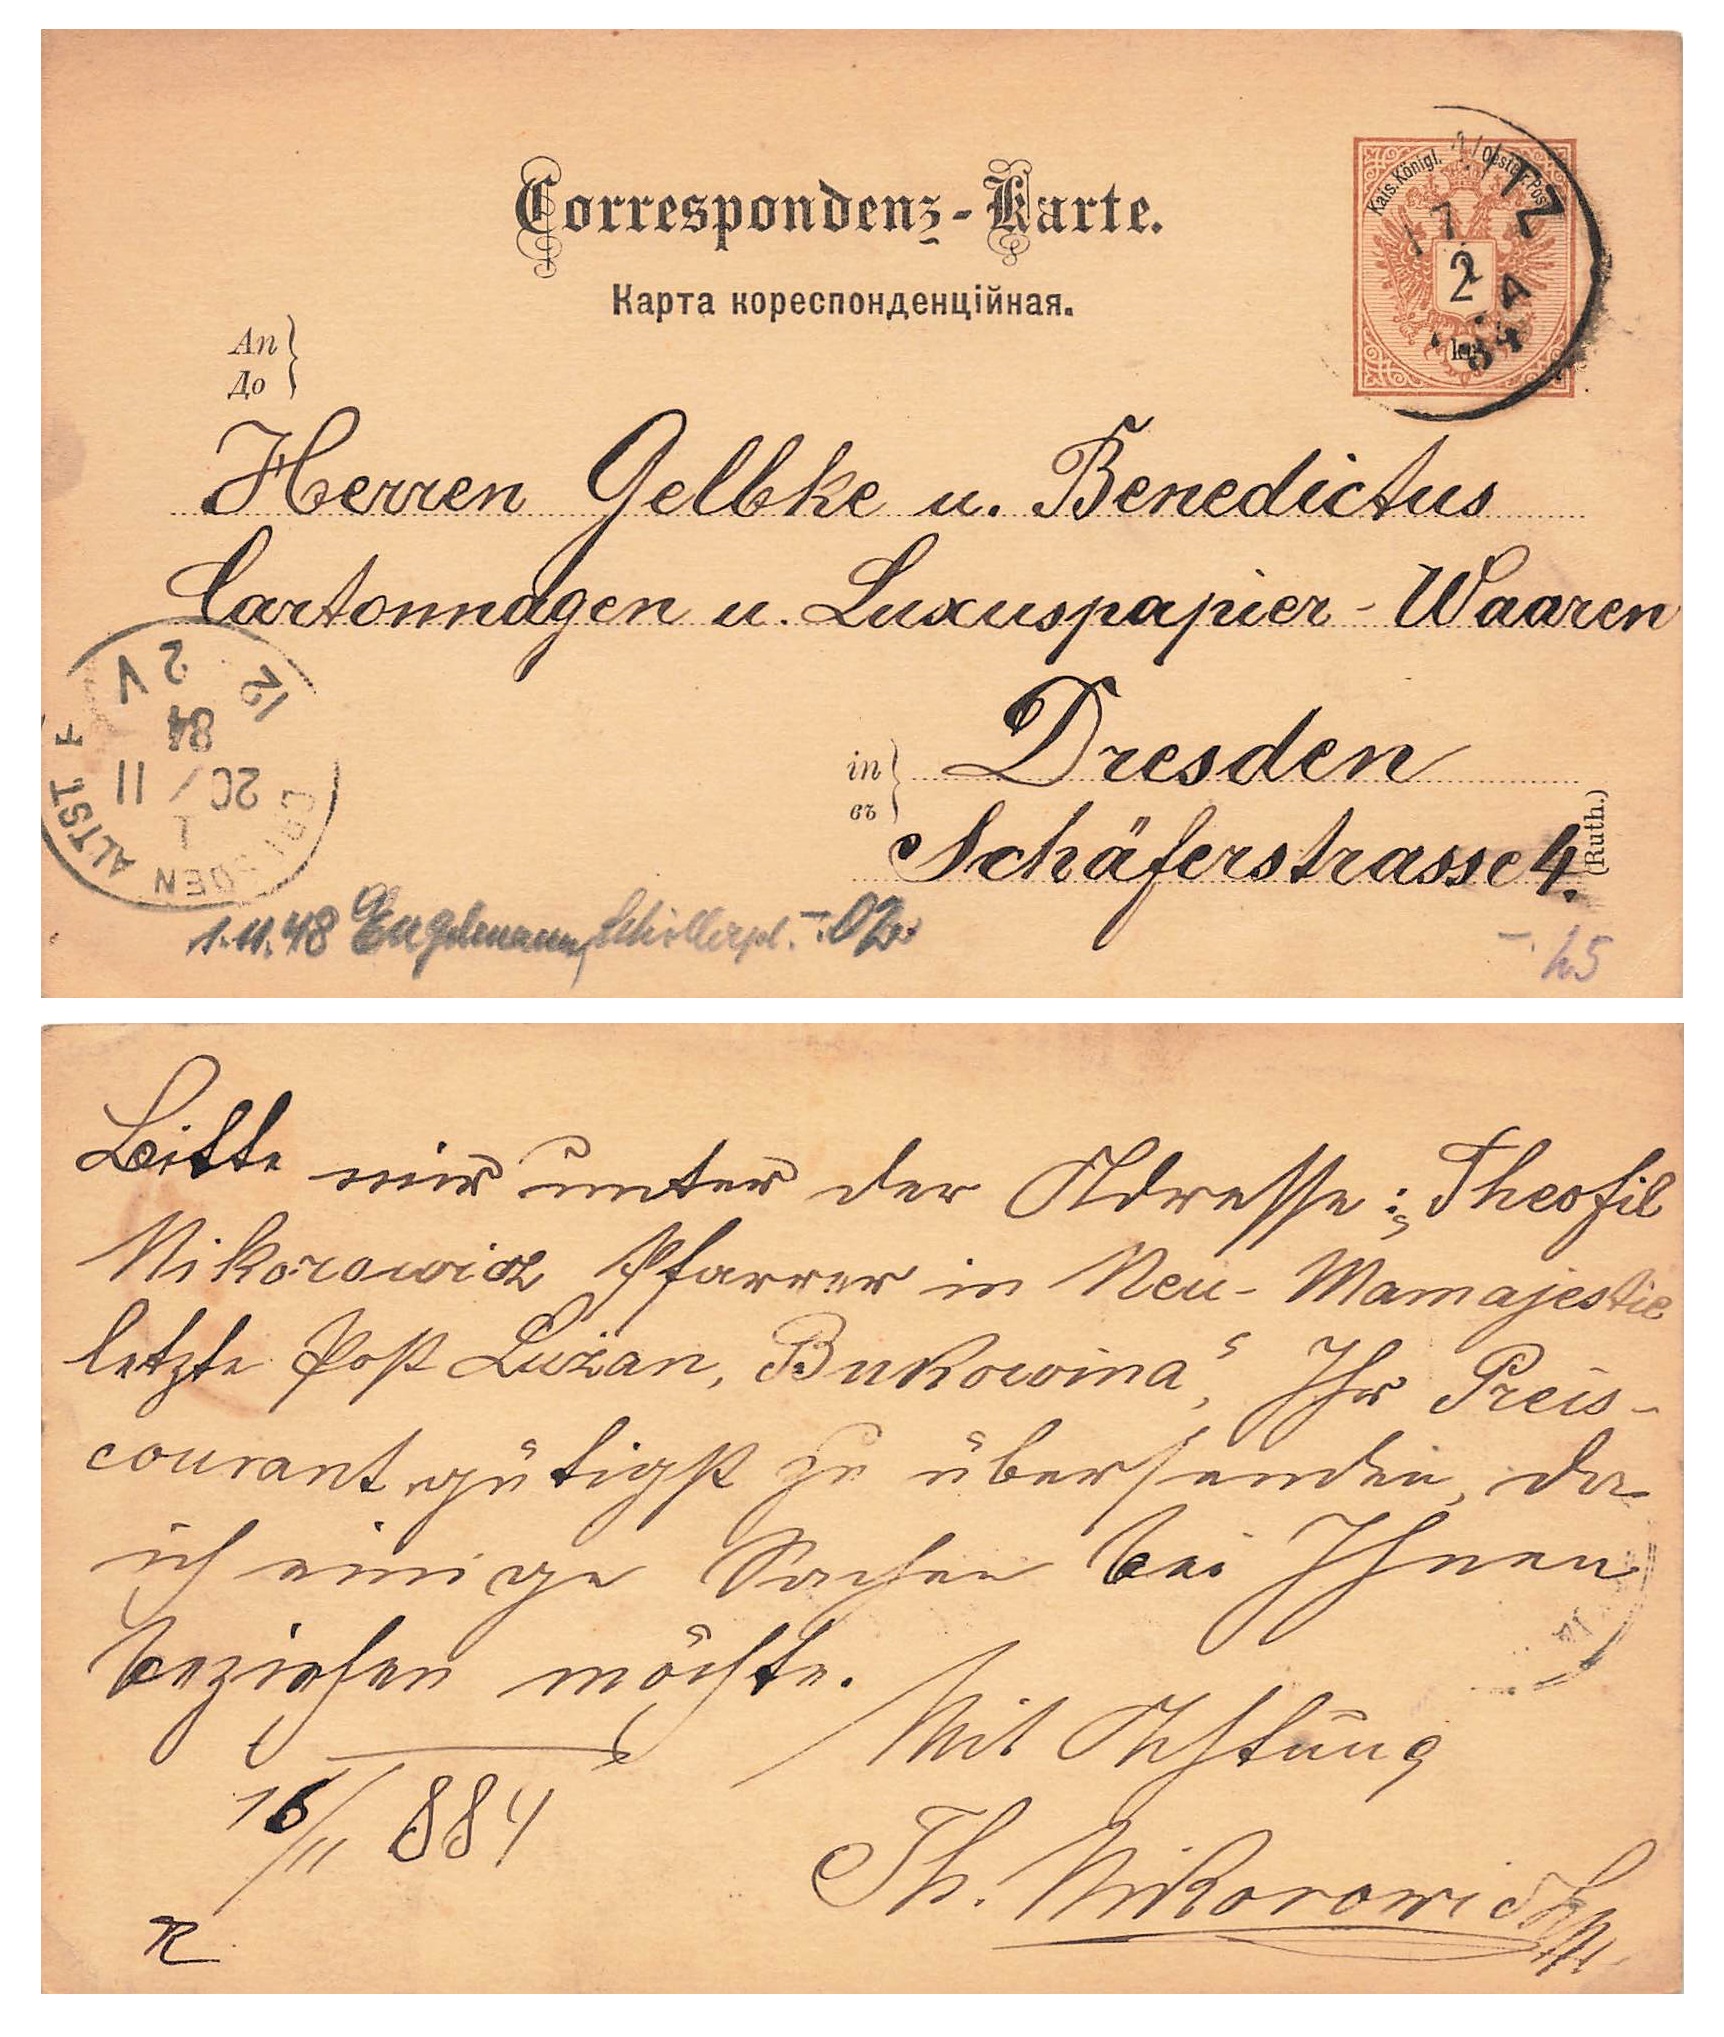 Correspondenz-Karte.
Карта кореспонденцiйная.
Kais. Königl. Oesterr. Post
2
ITZ
17
84
An
До
Herren Gelbke u. Benedictus
Cartonnagen u. Luxuspapier-Waaren
in Dresden
въ
Schäferstrasse 4.
(Ruth.)
DRESDEN ALTST
20/11
84
2 V
12
1.11.48 Engelmann, -.02
-.45
Bitte mir unter der Adresse: „Theofil
Nikorowicz Pfarrer in Neu-Mamajestie
letzte Post Lużan, Bukowina“, Ihr Preis-
courant gütigst zu übersenden, da
ich einige Sachen bei Ihnen
beziehen möchte.
Mit Achtung
16/11 884
Th. Nikorowicz
R